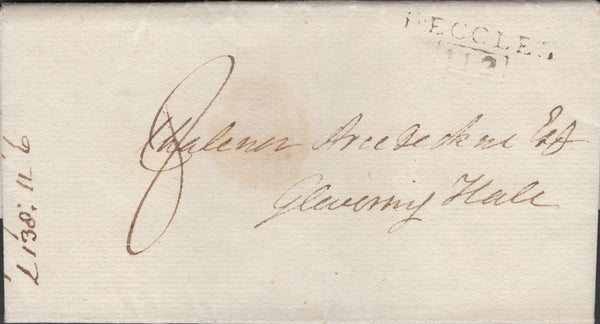 BECCLES
112
8
Chaloner Arcedeckne Esq
Glevering Hall
£138:11:6